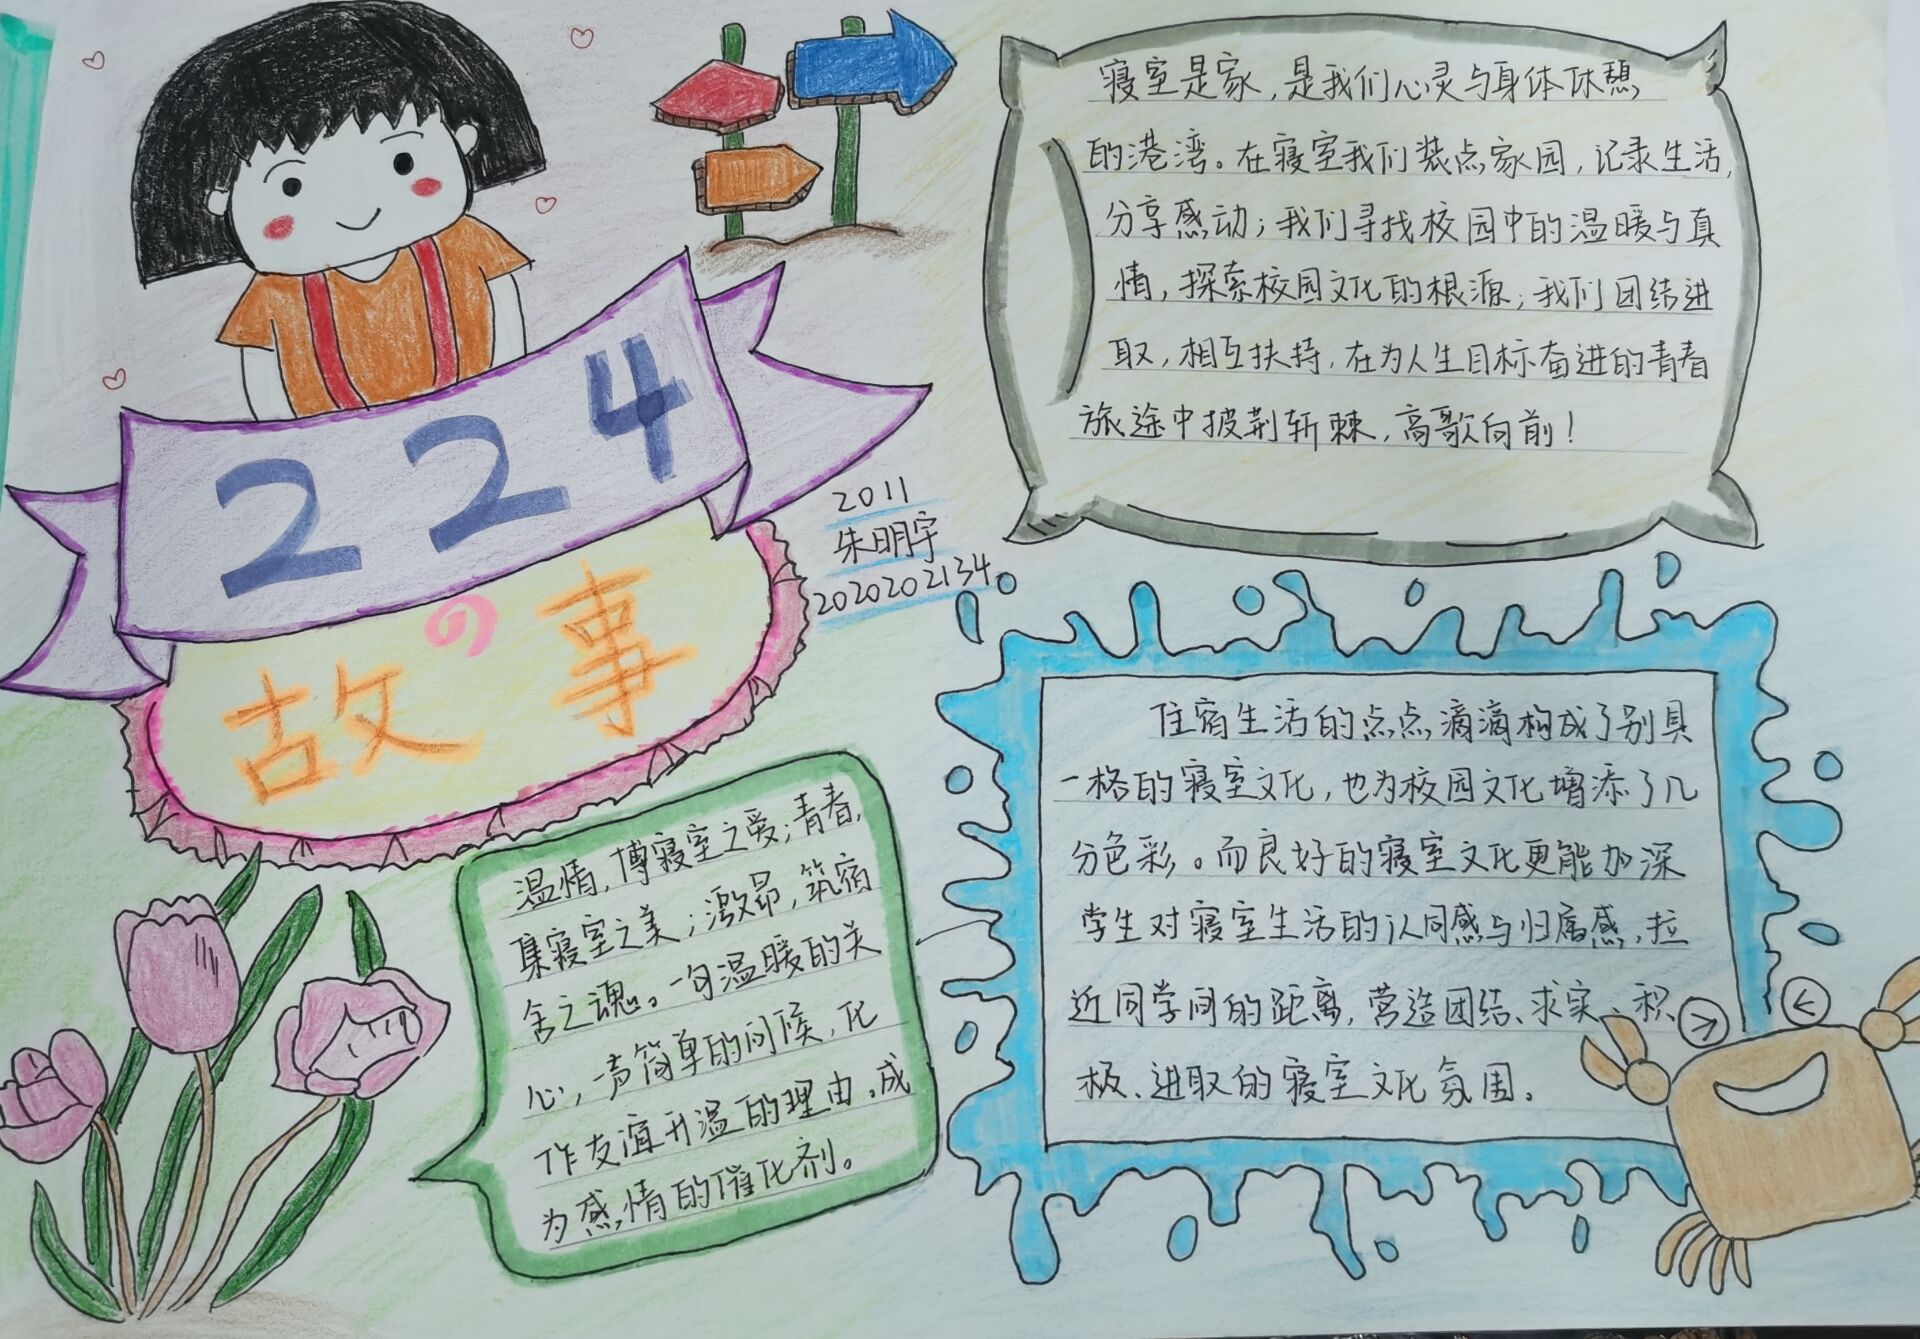 224
の
故事
2011
朱明宇
2020202134
寝室是家，是我们心灵与身体休憩
的港湾。在寝室我们装点家园，记录生活，
分享感动；我们寻找校园中的温暖与真
情，探索校园文化的根源；我们团结进
取，相互扶持，在为人生目标奋进的青春
旅途中披荆斩棘，高歌向前！
温情，博寝室之爱；青春，
集寝室之美；激昂，筑宿
舍之魂。一句温暖的关
心，一声简单的问候，化
作友谊升温的理由，成
为感情的催化剂。
住宿生活的点点滴滴构成了别具
一格的寝室文化，也为校园文化增添了几
分色彩。而良好的寝室文化更能加深
学生对寝室生活的认同感与归属感，拉
近同学间的距离，营造团结、求实、积
极、进取的寝室文化氛围。